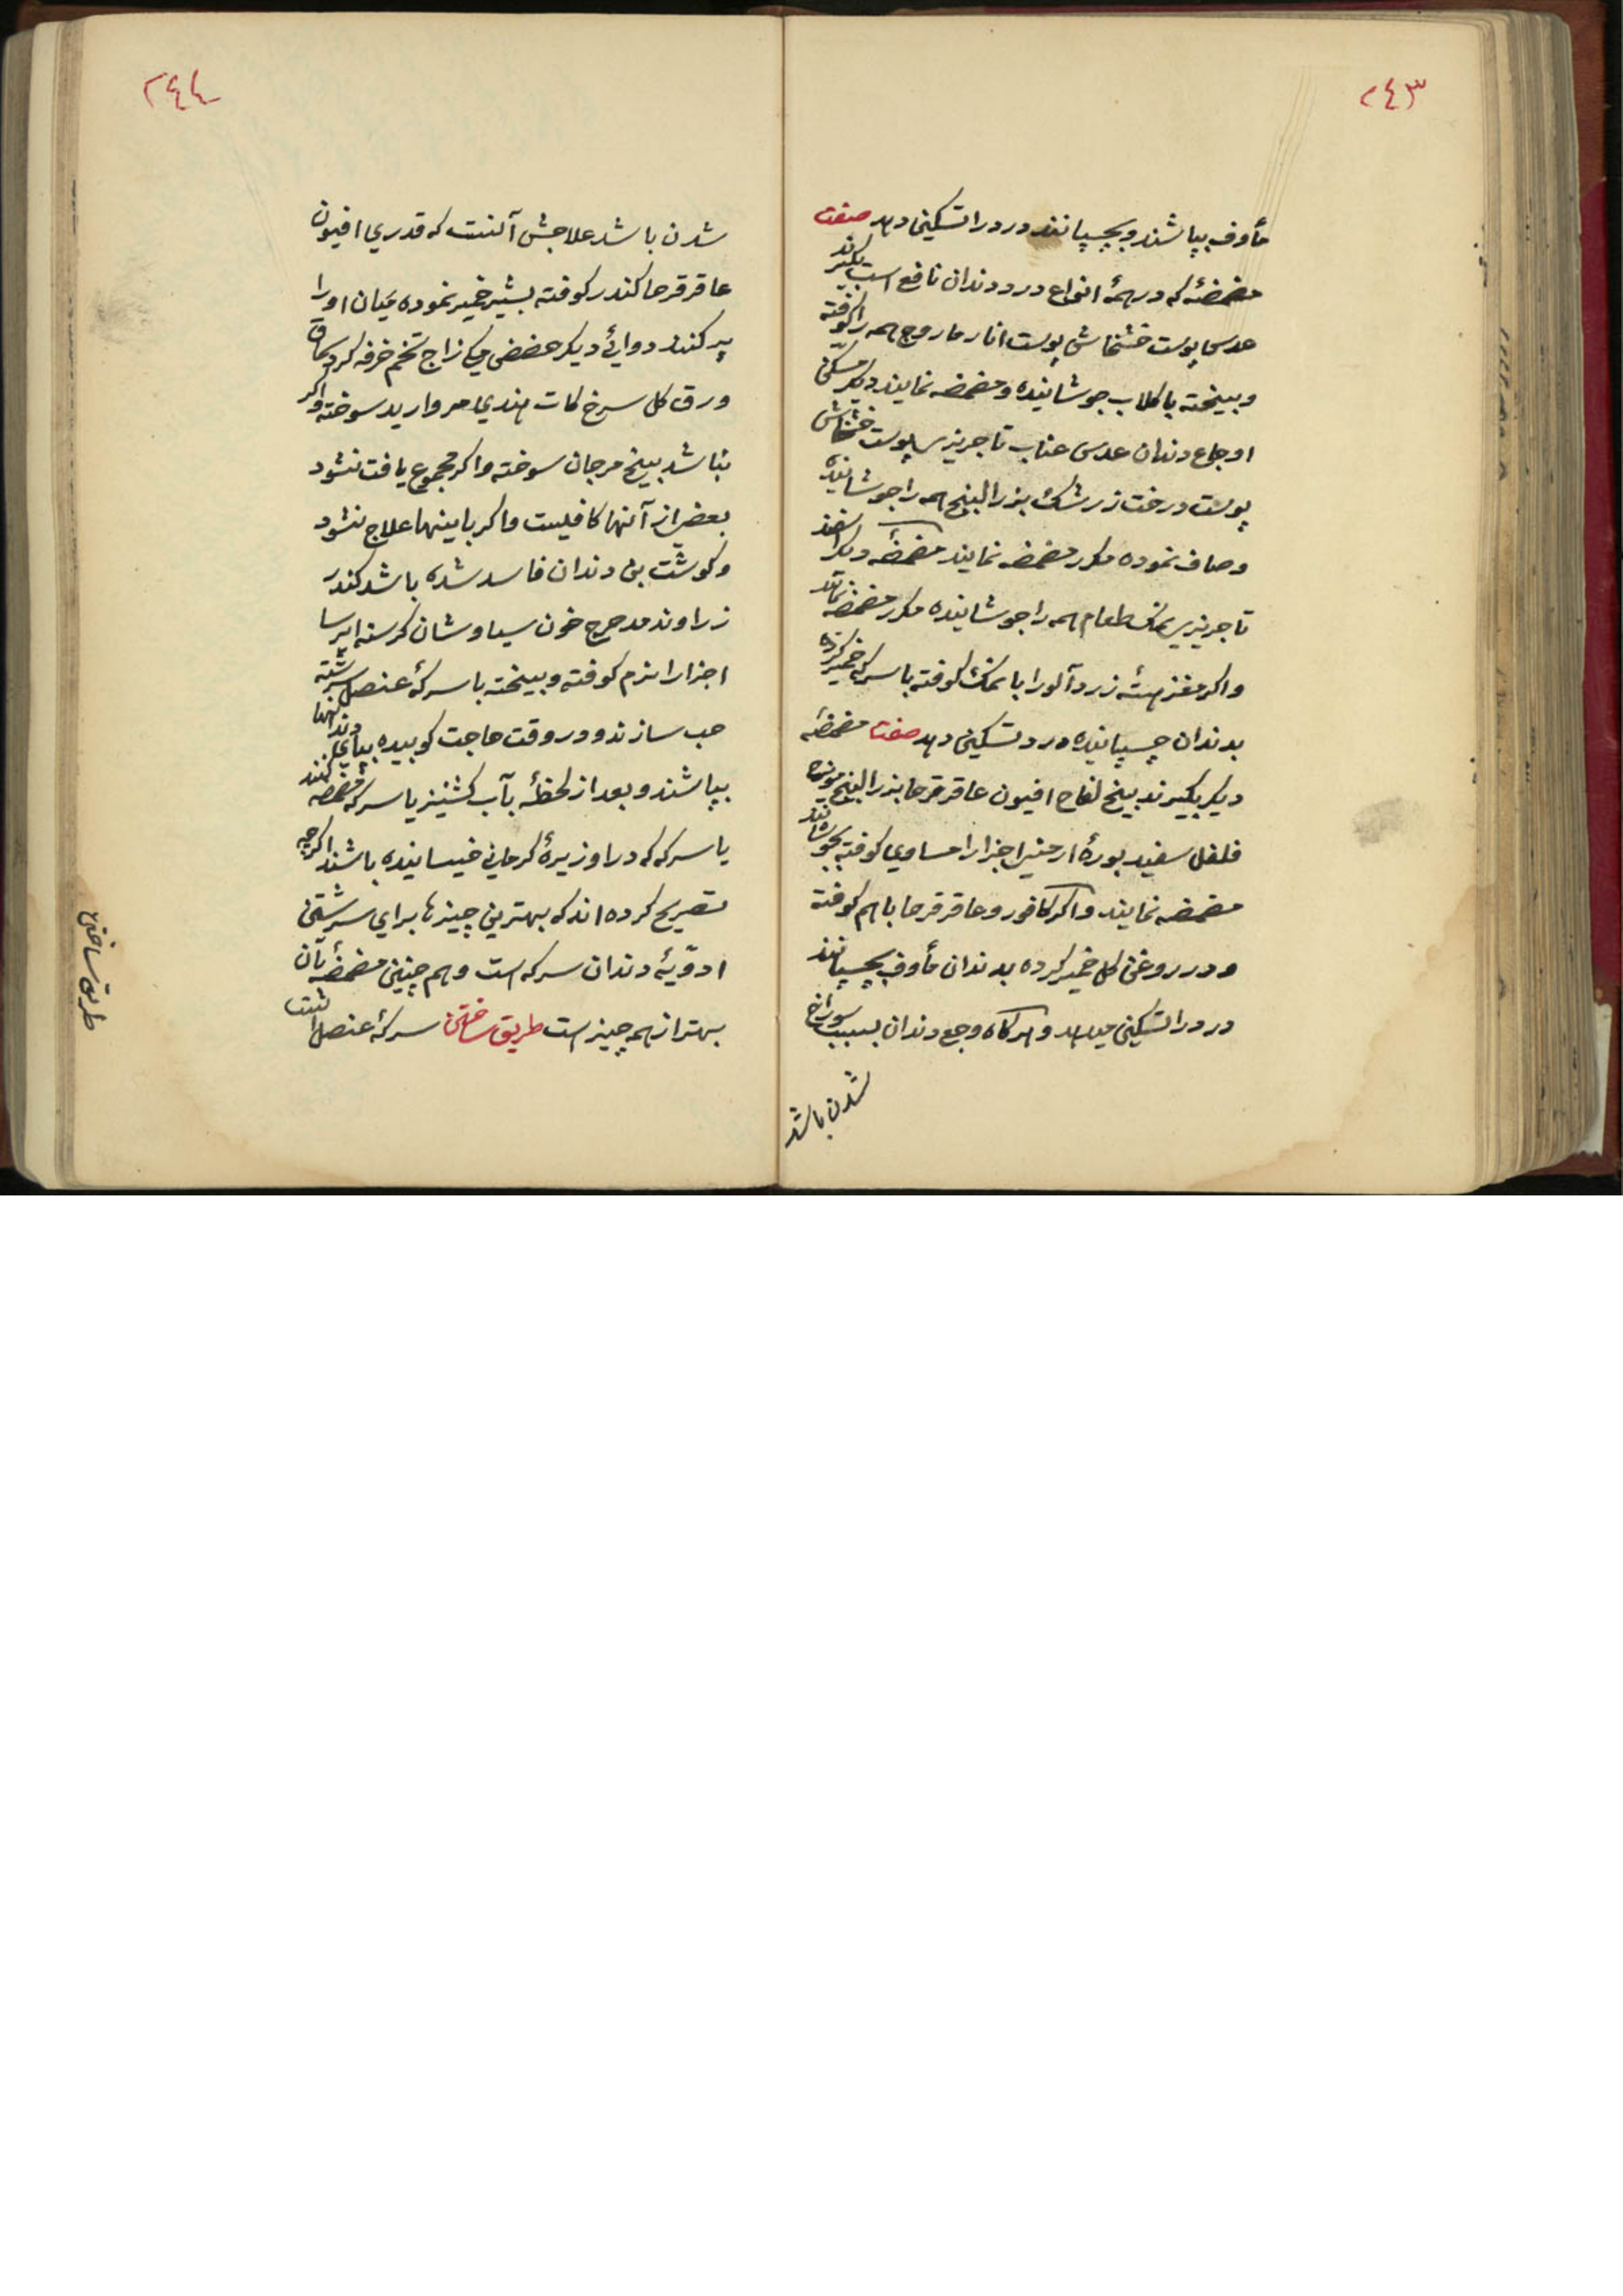 ٢٤٣
مأوف بپاشند و بچسپانند درد را تسکین دهد صفت
مضمضهٔ که در همهٔ انواع درد دندان نافع است بگیرند
عدس پوست خشخاش پوست انار مازوج همه را کوفته
و بیخته با کلاب جوشانیده و مضمضه نمایند دیکر مسکن
اوجاع دندان عدس عناب تاجریزی پوست خشخاش
پوست درخت زرشک بزرالبنج همه را جوشانیده
و صاف نموده مکرر مضمضه نمایند مضمضهٔ دیکر
تاجریزی نمک طعام همه را جوشانیده مکرر مضمضه نمایند
و اکر مغز هستهٔ زردآلو را با نمک کوفته با سرکه خمیر کرده
بدندان چسپانیده درد تسکین دهد صفت مضمضهٔ
دیکر بکیرند بیخ لفاح افیون عاقرقرحا بذرالبنج مویزج
فلفل سفید بورهٔ ارمنی اجزا را مساوی کوفته بجوشانند
مضمضه نمایند و اکر کافور و عاقرقرحا باهم کوفته
و در روغن کل خمیر کرده بدندان مأوف بچسپانند
درد را تسکین میدهد و هرکاه وجع دندان بسبب سوراخ
شدن باشد
٢٤٤
شدن باشد علاجش آنست که قدری افیون
عاقرقرحا کندر کوفته بشیر خمیر نموده میان او را
پر کنند دوائی دیکر حضض مکی زاج تخم خرفه کرد سماق
ورق کل سرخ کات هندی مروارید سوخته و اکر
نباشد بیخ مرجان سوخته و اکر مجموع یافت نشود
بعضی از آنها کافیست و اکر باینها علاج نشود
و کوشت بن دندان فاسد شده باشد کندر
زراوند مدحرج خون سیاوشان کرسنه ایرسا
اجزا را نرم کوفته و بیخته با سرکهٔ عنصل سرشته
حب سازند و در وقت حاجت کوبیده بپای دندانها
بپاشند و بعد از لحظهٔ بآب کشنیز یا سرکه مضمضه کنند
یا سرکه که در او زیرهٔ کرمانی خیسانیده باشند اکرچه
تصریح کرده اند که بهترین چیزها برای سرشتن
ادویّهٔ دندان سرکه است و هم چنین مضمضهٔ بآن
بهتر از همه چیز است طریق ساختن سرکهٔ عنصل
طریق ساختن